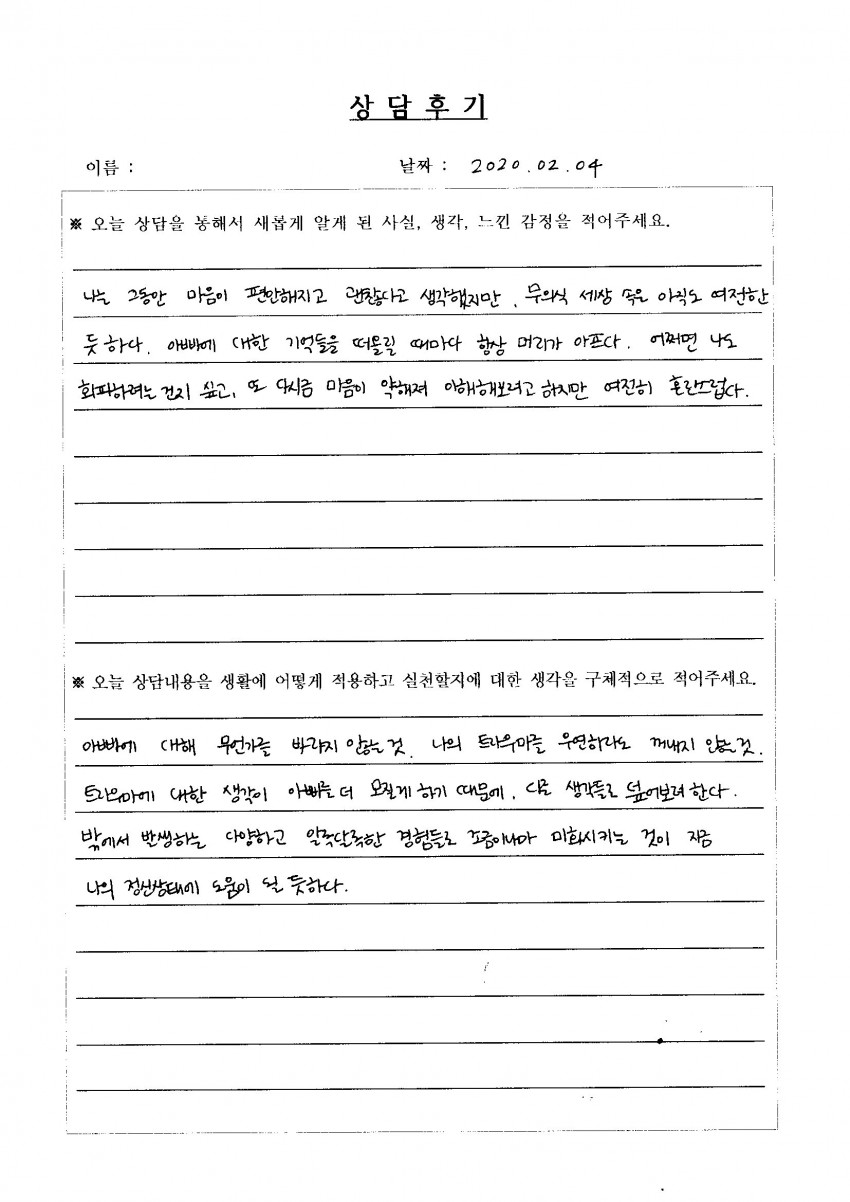 상 담 후 기
이름 : 날짜 : 2020.02.04
※ 오늘 상담을 통해서 새롭게 알게 된 사실, 생각, 느낀 감정을 적어주세요.
나는 그동안 마음이 편안해지고 괜찮다고 생각했지만, 무의식 세상 속은 아직도 여전한
듯하다. 아빠에 대한 기억들을 떠올릴 때마다 항상 머리가 아프다. 어쩌면 나도
회피하려는 건지 싶고, 또 다시금 마음이 약해져 이해해보려고 하지만 여전히 혼란스럽다.
※ 오늘 상담내용을 생활에 어떻게 적용하고 실천할지에 대한 생각을 구체적으로 적어주세요.
아빠에 대해 무언가를 바라지 않는 것. 나의 트라우마를 우연하라도 꺼내지 않는 것.
트라우마에 대한 생각이 아빠를 더 모질게 하기 때문에, 다른 생각들로 덮어보려 한다.
밖에서 발생하는 다양하고 알록달록한 경험들로 조금이나마 미화시키는 것이 지금
나의 정신상태에 도움이 될 듯하다.